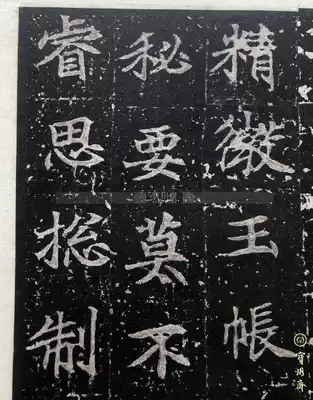 精微王帳
秘要莫不
睿思揔制